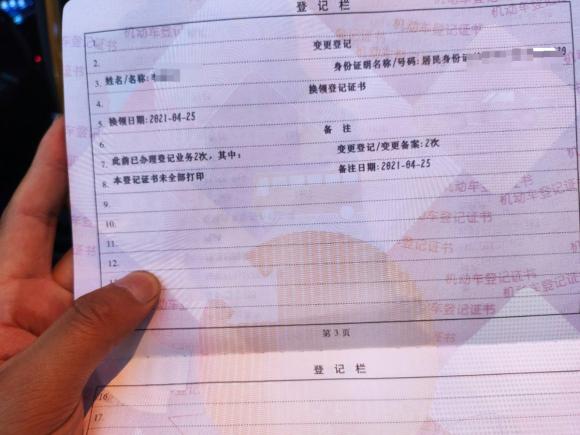 登记栏
1.
变更登记
2.
身份证明名称/号码:居民身份证
3. 姓名/名称:
换领登记证书
4.
5. 换领日期:2021-04-25
备 注
6.
变更登记/变更备案:2次
7. 此前已办理登记业务2次，其中:
备注日期:2021-04-25
8. 本登记证书未全部打印
9.
10.
11.
12.
第3页
登记栏
16.
17.
机动车登记证书
机动车登记证书
机动车登记证书
机动车登记证书
机动车登记证书